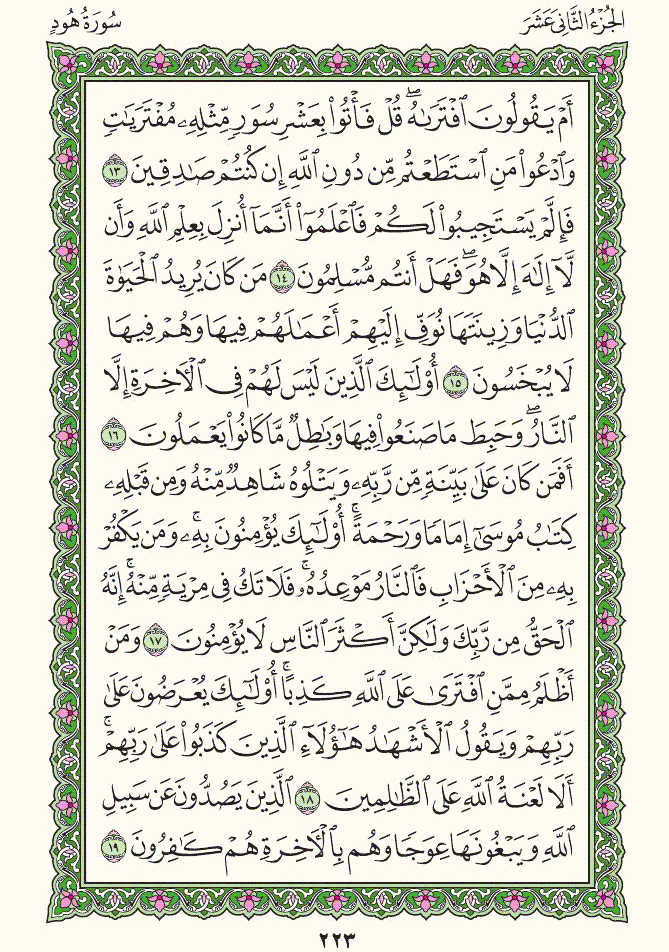 الجُزْءُ الثَّانِىَ عَشَرَ
سُورَةُ هُودٍ
أَمْ يَقُولُونَ ٱفْتَرَىٰهُۖ قُلْ فَأْتُوا۟ بِعَشْرِ سُوَرٍ مِّثْلِهِۦ مُفْتَرَيَٰتٍ
وَٱدْعُوا۟ مَنِ ٱسْتَطَعْتُم مِّن دُونِ ٱللَّهِ إِن كُنتُمْ صَٰدِقِينَ ١٣
فَإِلَّمْ يَسْتَجِيبُوا۟ لَكُمْ فَٱعْلَمُوٓا۟ أَنَّمَآ أُنزِلَ بِعِلْمِ ٱللَّهِ وَأَن
لَّآ إِلَٰهَ إِلَّا هُوَۖ فَهَلْ أَنتُم مُّسْلِمُونَ ١٤ مَن كَانَ يُرِيدُ ٱلْحَيَوٰةَ
ٱلدُّنْيَا وَزِينَتَهَا نُوَفِّ إِلَيْهِمْ أَعْمَٰلَهُمْ فِيهَا وَهُمْ فِيهَا
لَا يُبْخَسُونَ ١٥ أُو۟لَٰٓئِكَ ٱلَّذِينَ لَيْسَ لَهُمْ فِى ٱلْءَاخِرَةِ إِلَّا
ٱلنَّارُۖ وَحَبِطَ مَا صَنَعُوا۟ فِيهَا وَبَٰطِلٌ مَّا كَانُوا۟ يَعْمَلُونَ ١٦
أَفَمَن كَانَ عَلَىٰ بَيِّنَةٍ مِّن رَّبِّهِۦ وَيَتْلُوهُ شَاهِدٌ مِّنْهُ وَمِن قَبْلِهِۦ
كِتَٰبُ مُوسَىٰٓ إِمَامًا وَرَحْمَةًۚ أُو۟لَٰٓئِكَ يُؤْمِنُونَ بِهِۦۚ وَمَن يَكْفُرْ
بِهِۦ مِنَ ٱلْأَحْزَابِ فَٱلنَّارُ مَوْعِدُهُۥۚ فَلَا تَكُ فِى مِرْيَةٍ مِّنْهُۚ إِنَّهُ
ٱلْحَقُّ مِن رَّبِّكَ وَلَٰكِنَّ أَكْثَرَ ٱلنَّاسِ لَا يُؤْمِنُونَ ١٧ وَمَنْ
أَظْلَمُ مِمَّنِ ٱفْتَرَىٰ عَلَى ٱللَّهِ كَذِبًاۚ أُو۟لَٰٓئِكَ يُعْرَضُونَ عَلَىٰ
رَبِّهِمْ وَيَقُولُ ٱلْأَشْهَٰدُ هَٰٓؤُلَآءِ ٱلَّذِينَ كَذَبُوا۟ عَلَىٰ رَبِّهِمْۚ
أَلَا لَعْنَةُ ٱللَّهِ عَلَى ٱلظَّٰلِمِينَ ١٨ ٱلَّذِينَ يَصُدُّونَ عَن سَبِيلِ
ٱللَّهِ وَيَبْغُونَهَا عِوَجًا وَهُم بِٱلْءَاخِرَةِ هُمْ كَٰفِرُونَ ١٩
٢٢٣